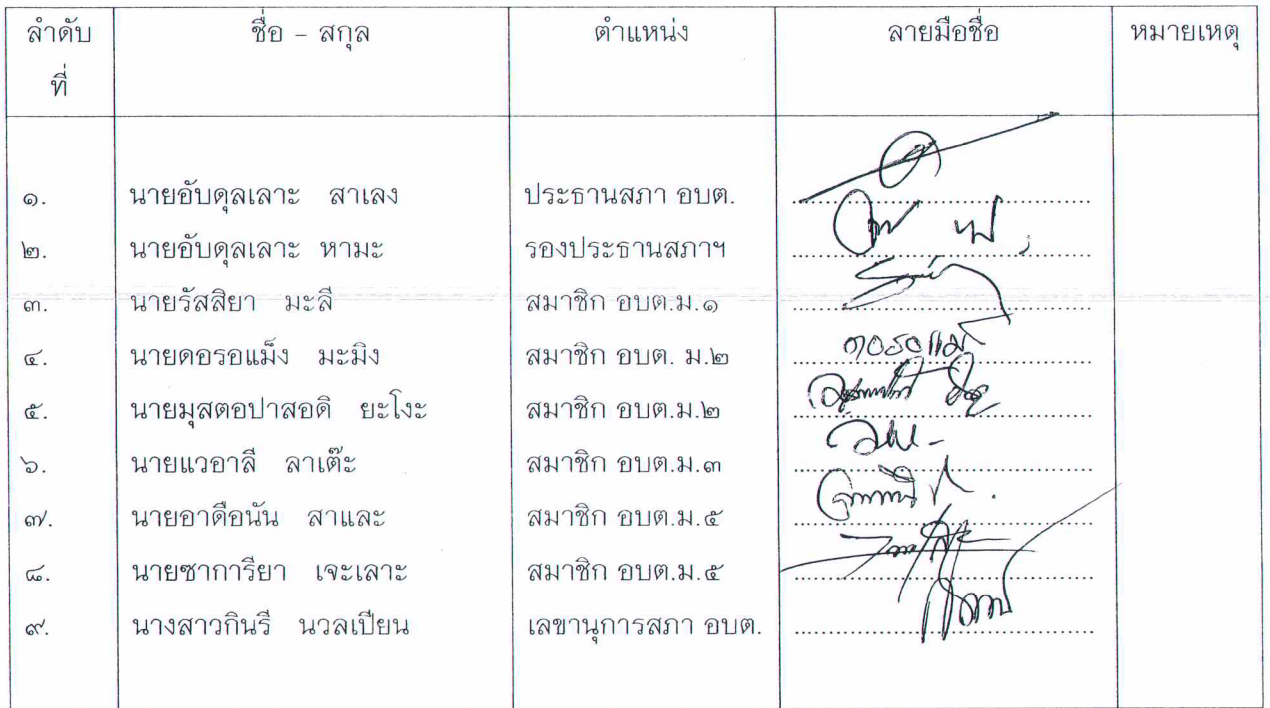 ลำดับที่ ชื่อ - สกุล ตำแหน่ง ลายมือชื่อ หมายเหตุ
๑. นายอับดุลเลาะ สาเลง ประธานสภา อบต.
๒. นายอับดุลเลาะ หามะ รองประธานสภาฯ
๓. นายรัสสิยา มะลี สมาชิก อบต.ม.๑
๔. นายดอรอแม็ง มะมิง สมาชิก อบต. ม.๒ ดอรอแม็
๕. นายมุสตอปาสอดิ ยะโงะ สมาชิก อบต.ม.๒
๖. นายแวอาลี ลาเต๊ะ สมาชิก อบต.ม.๓
๗. นายอาดือนัน สาและ สมาชิก อบต.ม.๕
๘. นายซาการียา เจะเลาะ สมาชิก อบต.ม.๕
๙. นางสาวกินรี นวลเปียน เลขานุการสภา อบต.